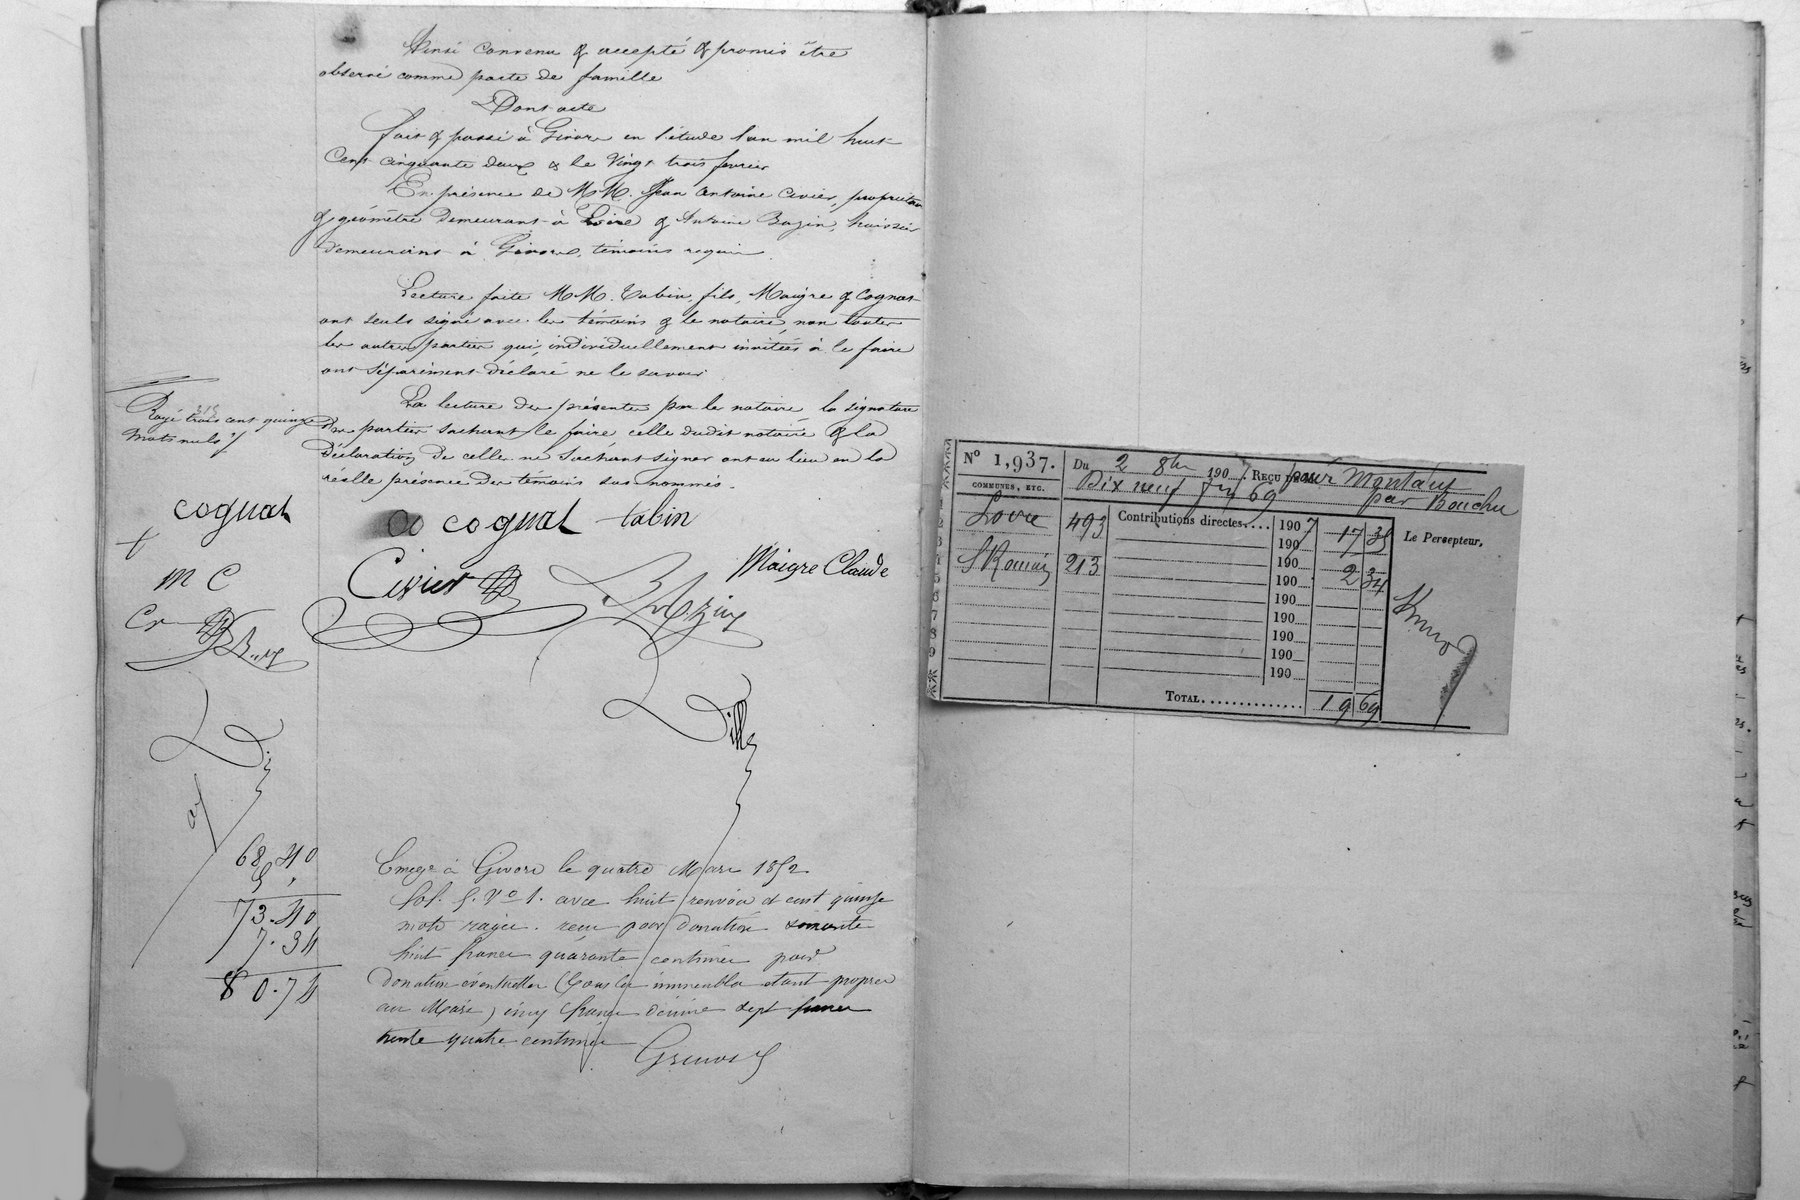 Ainsi convenu & accepté & promis être
observé comme pacte de famille
Dont acte
fait & passé à Givors en l'étude l'an mil huit
Cent cinquante deux & le Vingt trois fevrier
En présence de MM. Jean Antoine Civier, propriétaire
& géomètre demeurant à Loire & Antoine Bazin, huissier
demeurant à Givors, témoins requis
Lecture faite MM. Tabin, fils, Maigre & Cognat
ont seuls signé avec les témoins & le notaire, non toutes
les autres parties qui, individuellement invitées à le faire
ont séparément déclaré ne le savoir
La lecture des présentes par le notaire, la signature
des parties sachant le faire, celle dudit notaire & la
déclaration de celles ne sachant signer ont eu lieu en la
réelle présence des témoins sus nommés.
315
Rayé trois cent quinze
mots nuls
cognat
cognat tabin
M C
Civier
Bazin
Maigre Claude
Cr
68,40
5,
73.40
7.34
80.74
Enregé à Givors le quatre Mars 1852
fol. 5. Vo 1. avec huit renvois et cent quinze
mots rayés. reçu pour donation soixante
huit francs quarante centimes pour
donation éventuelle (tous les immeubles etant propres
au Mari) cinq francs décime sept francs
trente quatre centimes
No 1,937.
Du 2 8bre 1907 Reçu pour Montant
Dix neuf f 69 par Bouchu
COMMUNES, ETC.
Loire 493 Contributions directes.... 1907 17 35
190
S Romain 213 190 2 34
190
190
190
190
190
190
Le Percepteur,
1
2
3
4
5
6
7
8
9
TOTAL............. 19 69